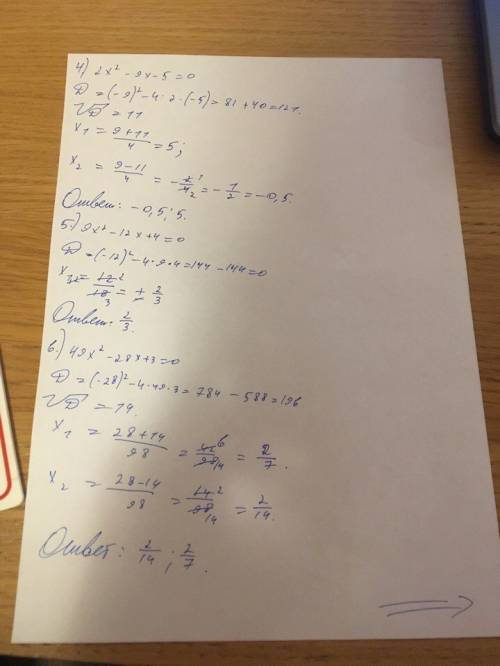 4) 2x² - 9x - 5 = 0
D = (-9)² - 4 · 2 · (-5) = 81 + 40 = 121.
√D = 11
x₁ = (9+11)/4 = 5;
x₂ = (9-11)/4 = -2/4 = -1/2 = -0,5.
Ответ: -0,5; 5.
5.) 9x² - 12x + 4 = 0
D = (-12)² - 4 · 9 · 4 = 144 - 144 = 0
= 12/18 = 2/3
Ответ: 2/3.
6.) 49x² - 28x + 3 = 0
D = (-28)² - 4 · 49 · 3 = 784 - 588 = 196
√D = 14.
x₁ = (28+14)/98 = 42/98 = 2/7.
x₂ = (28-14)/98 = 14/98 = 2/14.
Ответ: 2/14; 2/7.